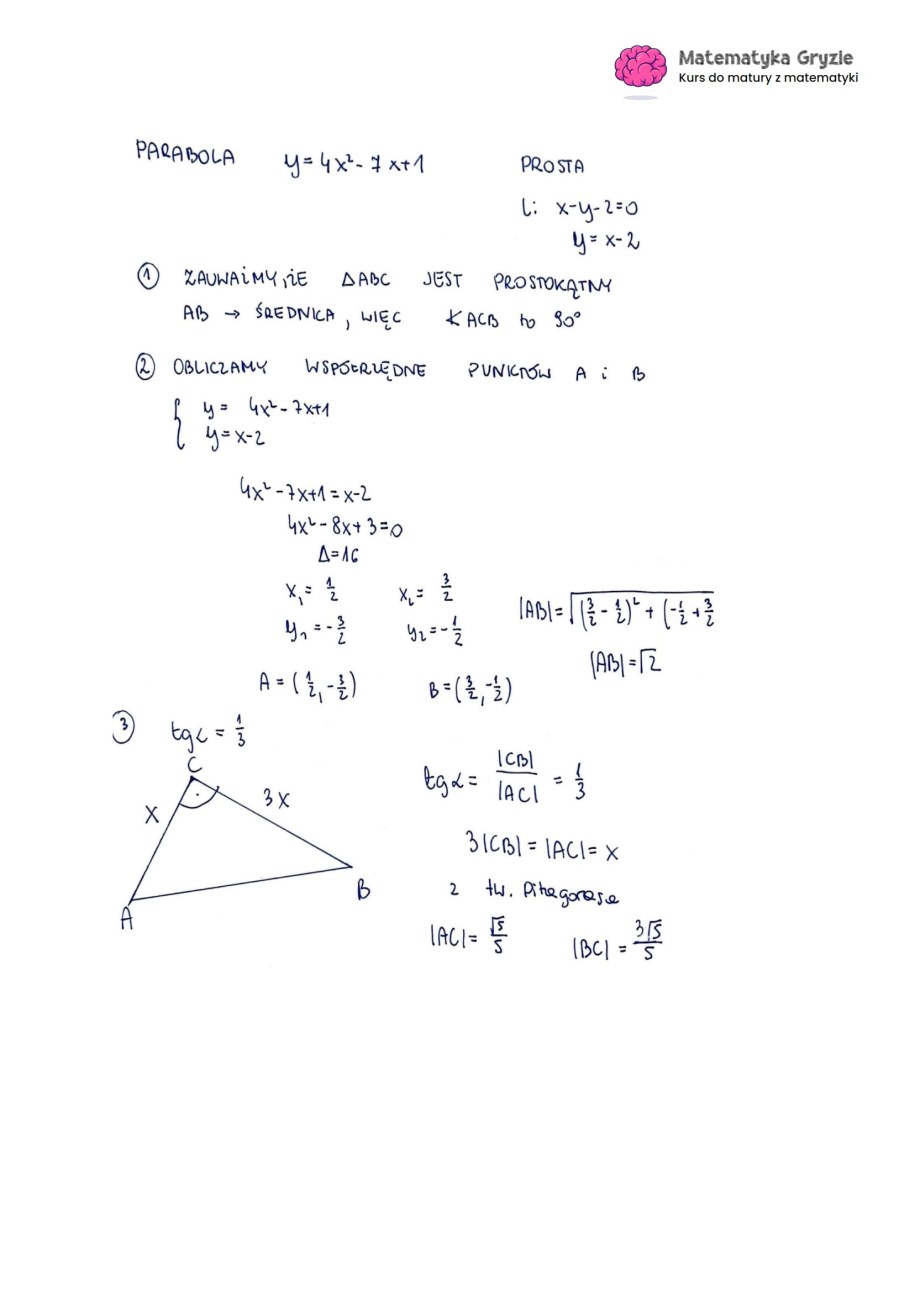 Matematyka Gryzie
Kurs do matury z matematyki
PARABOLA y = 4x² - 7x+1 PROSTA
l: x-y-2=0
y = x-2
① ZAUWAŻMY, ŻE ΔABC JEST PROSTOKĄTNY
AB → ŚREDNICA, WIĘC ∢ACB to 90°
② OBLICZAMY WSPÓŁRZĘDNE PUNKTÓW A i B
{ y = 4x² - 7x+1
y = x-2
4x² - 7x+1 = x-2
4x² - 8x + 3 = 0
Δ=16
x₁ = 1/2 x₂ = 3/2
y₁ = -3/2 y₂ = -1/2
|AB| = √(3/2 - 1/2)² + (-1/2 + 3/2
|AB| = √2
A = (1/2, -3/2) B = (3/2, -1/2)
③ tg α = 1/3
C
x 3x
A B
tg α = |CB|/|AC| = 1/3
3|CB| = |AC| = x
z tw. Pitagorasa
|AC| = √5/5 |BC| = 3√5/5